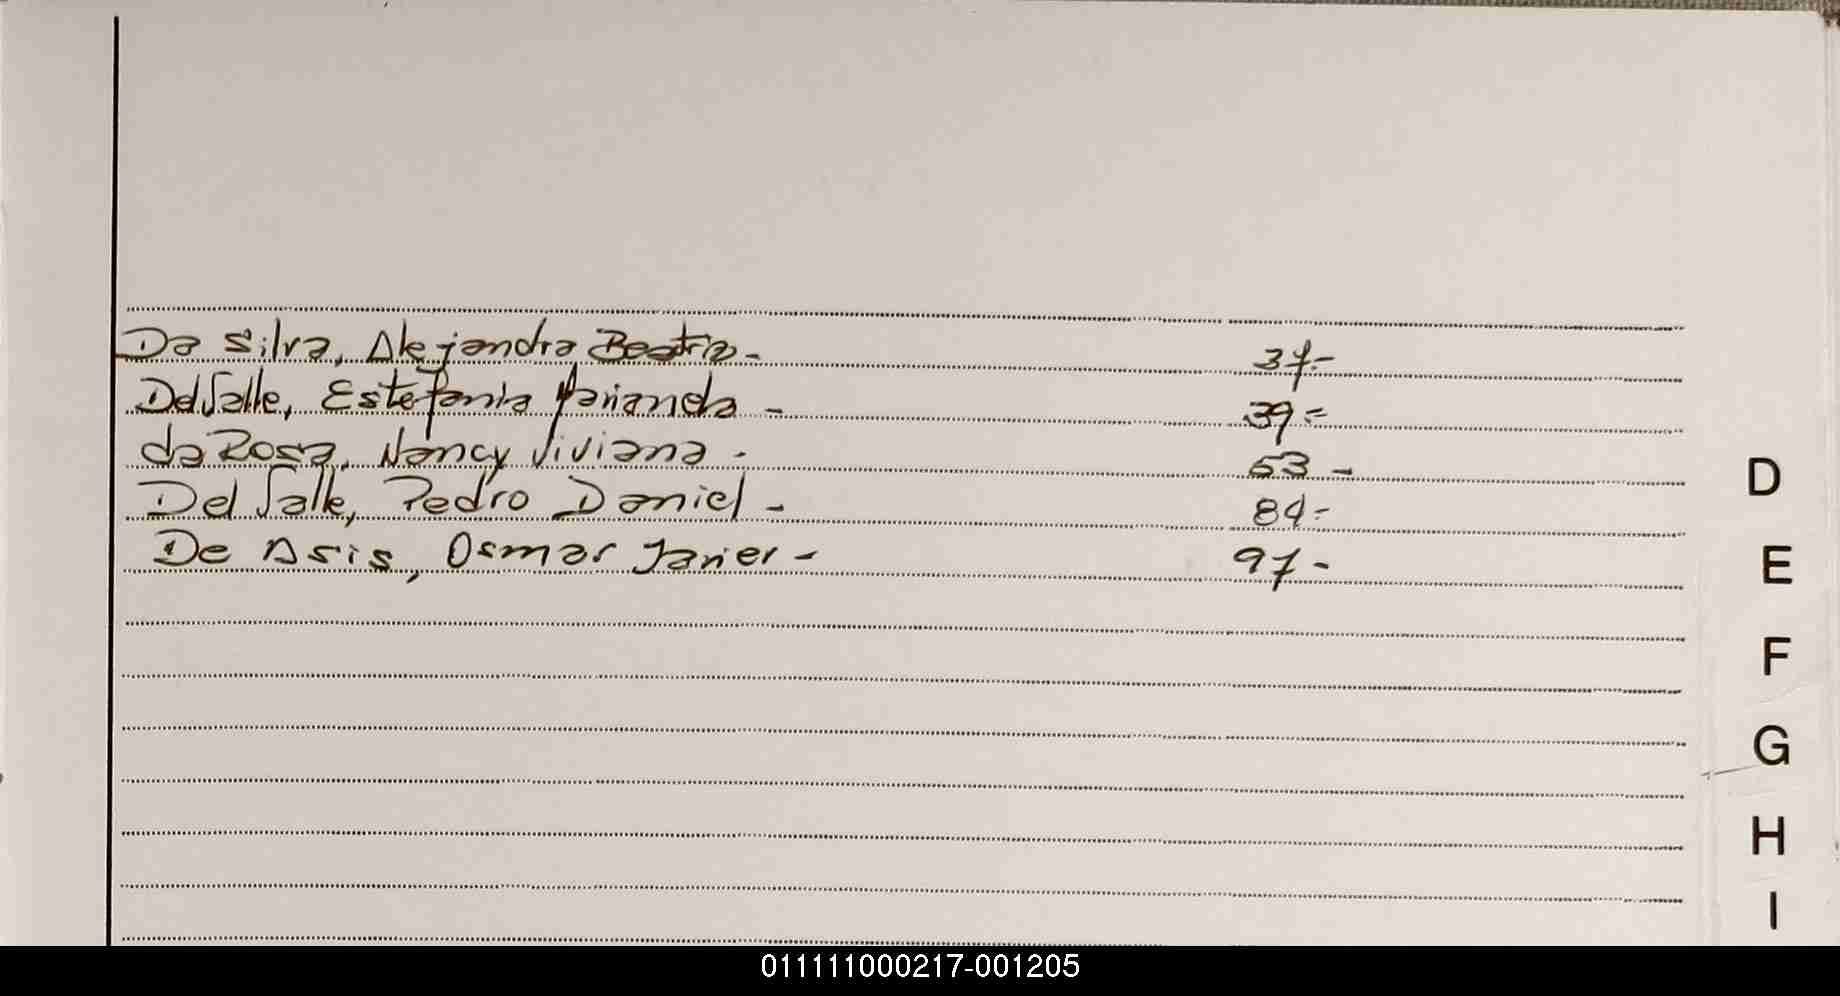 Da Silva, Alejandra Beatriz.- 37.-
Del Valle, Estefania Marianela - 39.-
da Rosa, Nancy Viviana. 53 -
Del Valle, Pedro Daniel - 84.-
De Asis, Osmar Javier - 97.-
D
E
F
G
H
I
011111000217-001205